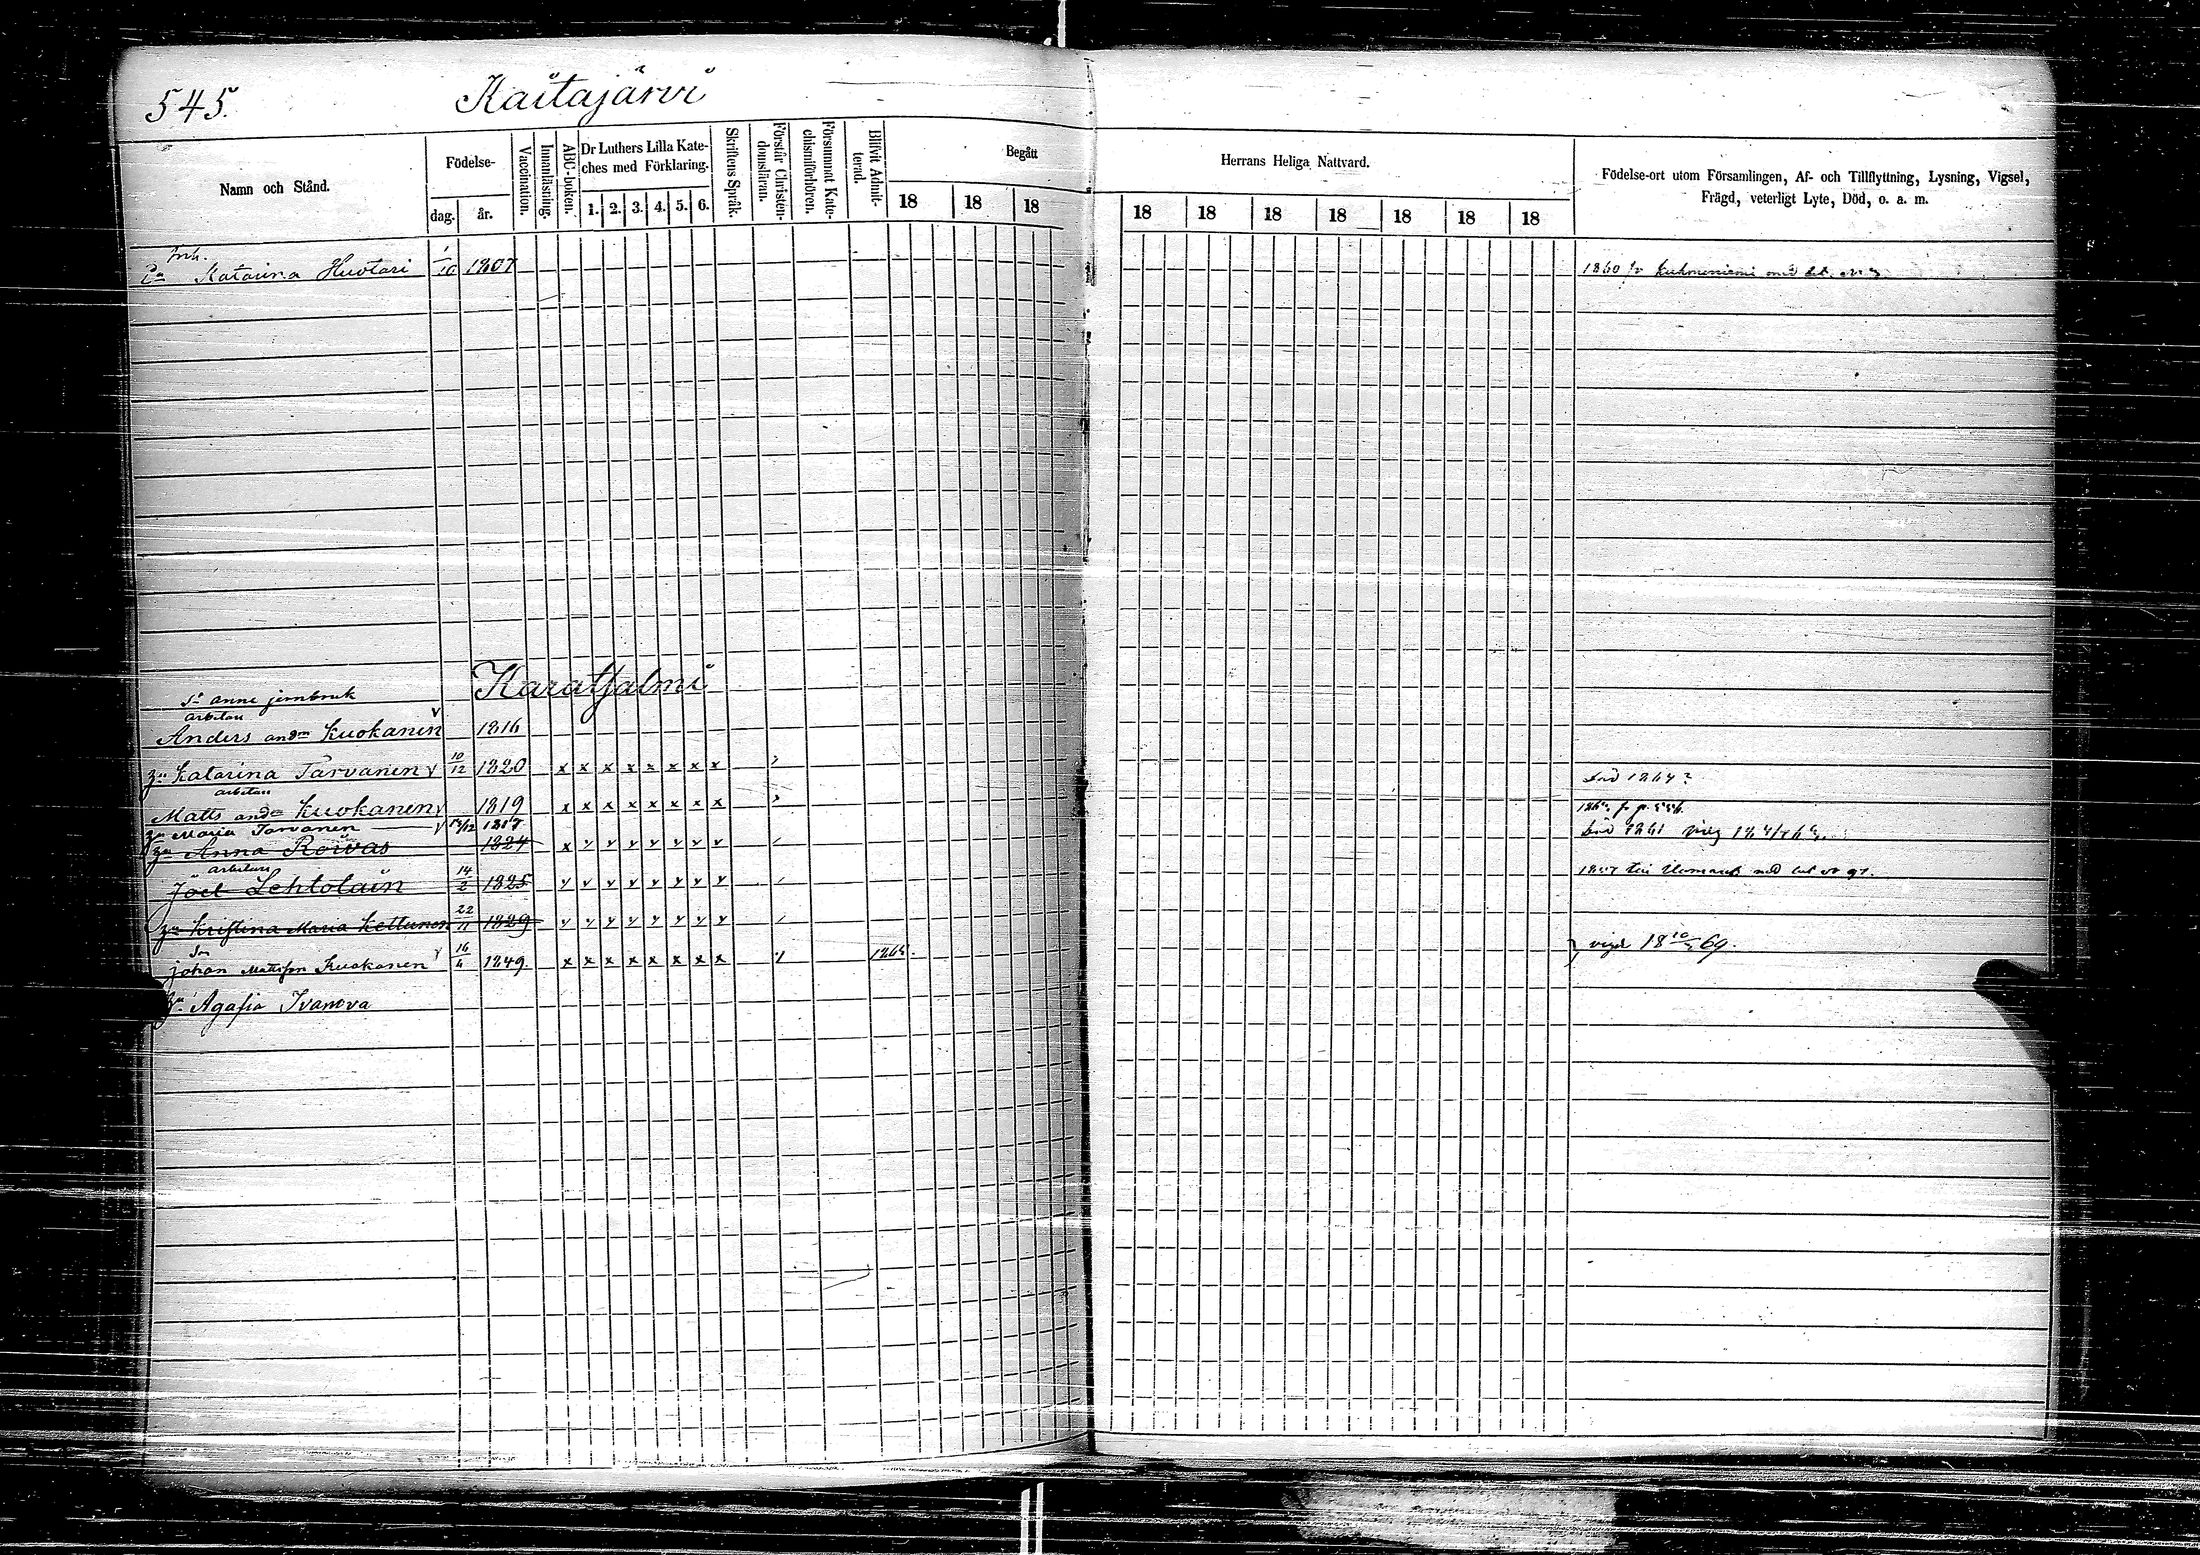 545. Kaitajärvi
Namn och Stånd.
Födelse-
dag. år.
Vaccination.
Innanläsning.
ABC-boken.
Dr Luthers Lilla Kate-
ches med Förklaring.
1. 2. 3. 4. 5. 6.
Skriftens Språk.
Förstår Christen-
domsläran.
Försummat Kate-
chismiförhören.
Blifvit Admit-
terad.
Begått
18 18 18
Herrans Heliga Nattvard.
18 18 18 18 18 18 18
Födelse-ort utom Församlingen, Af- och Tillflyttning, Lysning, Vigsel,
Frägd, veterligt Lyte, Död, o. a. m.
Inh.
Katarina Huotari 1/10 1807 1860 Kuhmoniemi
Karatsalmi
S:t anne jernbruk
arbetan
Anders andn Kuokanen v 1816
hu Katarina Tarvanen v 10/12 1820 x x x x x x x x död 1864?
arbetan
Matts andn Kuokanen v 1819 x x x x x x x x
hu Maria Tarvanen v 1817
hu Anna Roivas 1824 x v v v v v v död 1861
arbetan
Joel Lehtolain 14/2 1825 v v v v v v v v 1857 till
hu Kristina Maria Kettunen 22/11 1829 v v v v v v v v
Son
Johan Mattsson Kuokanen v 16/4 1849. x x x x x x x x vigd 18 69.
hu Agafia Ivanova